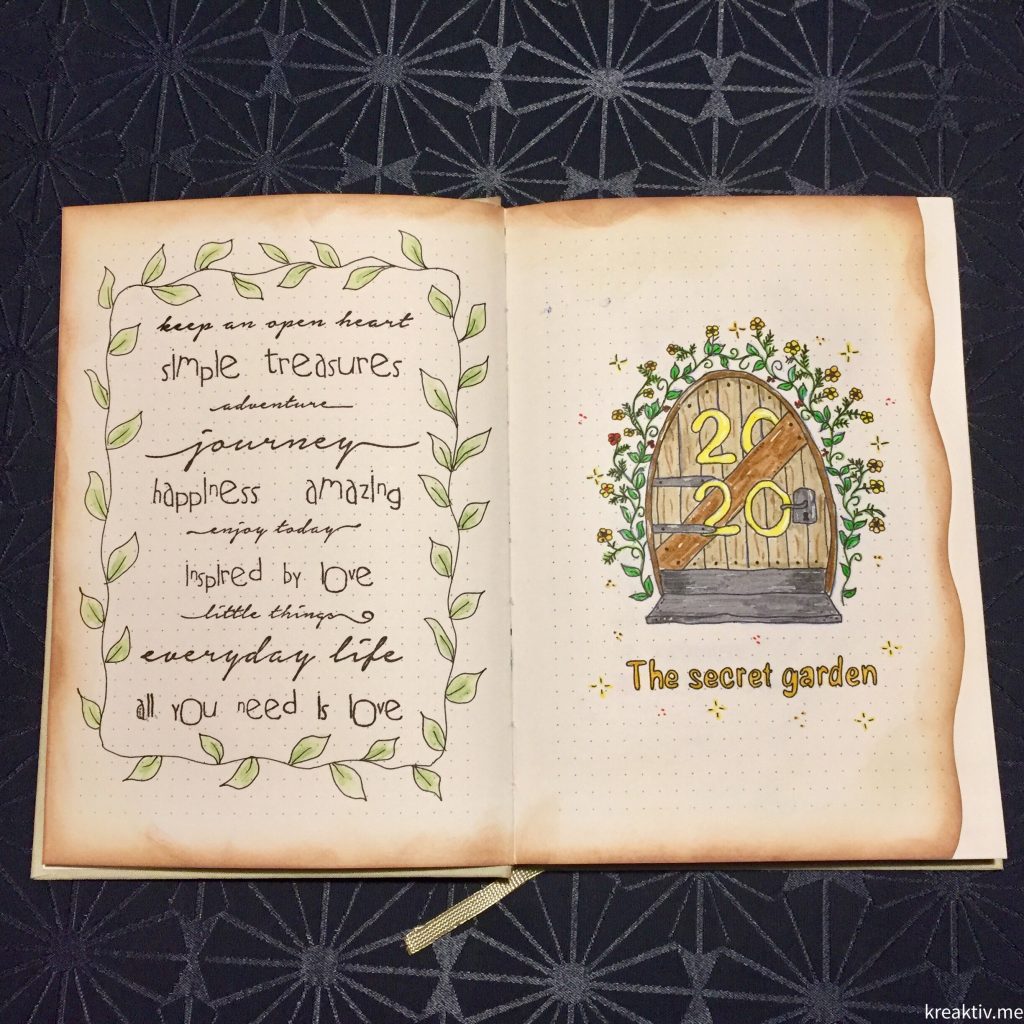 keep an open heart
simple treasures
adventure
journey
happiness amazing
enjoy today
inspired by love
little things
everyday life
all you need is love
20
20
The secret garden
kreaktiv.me